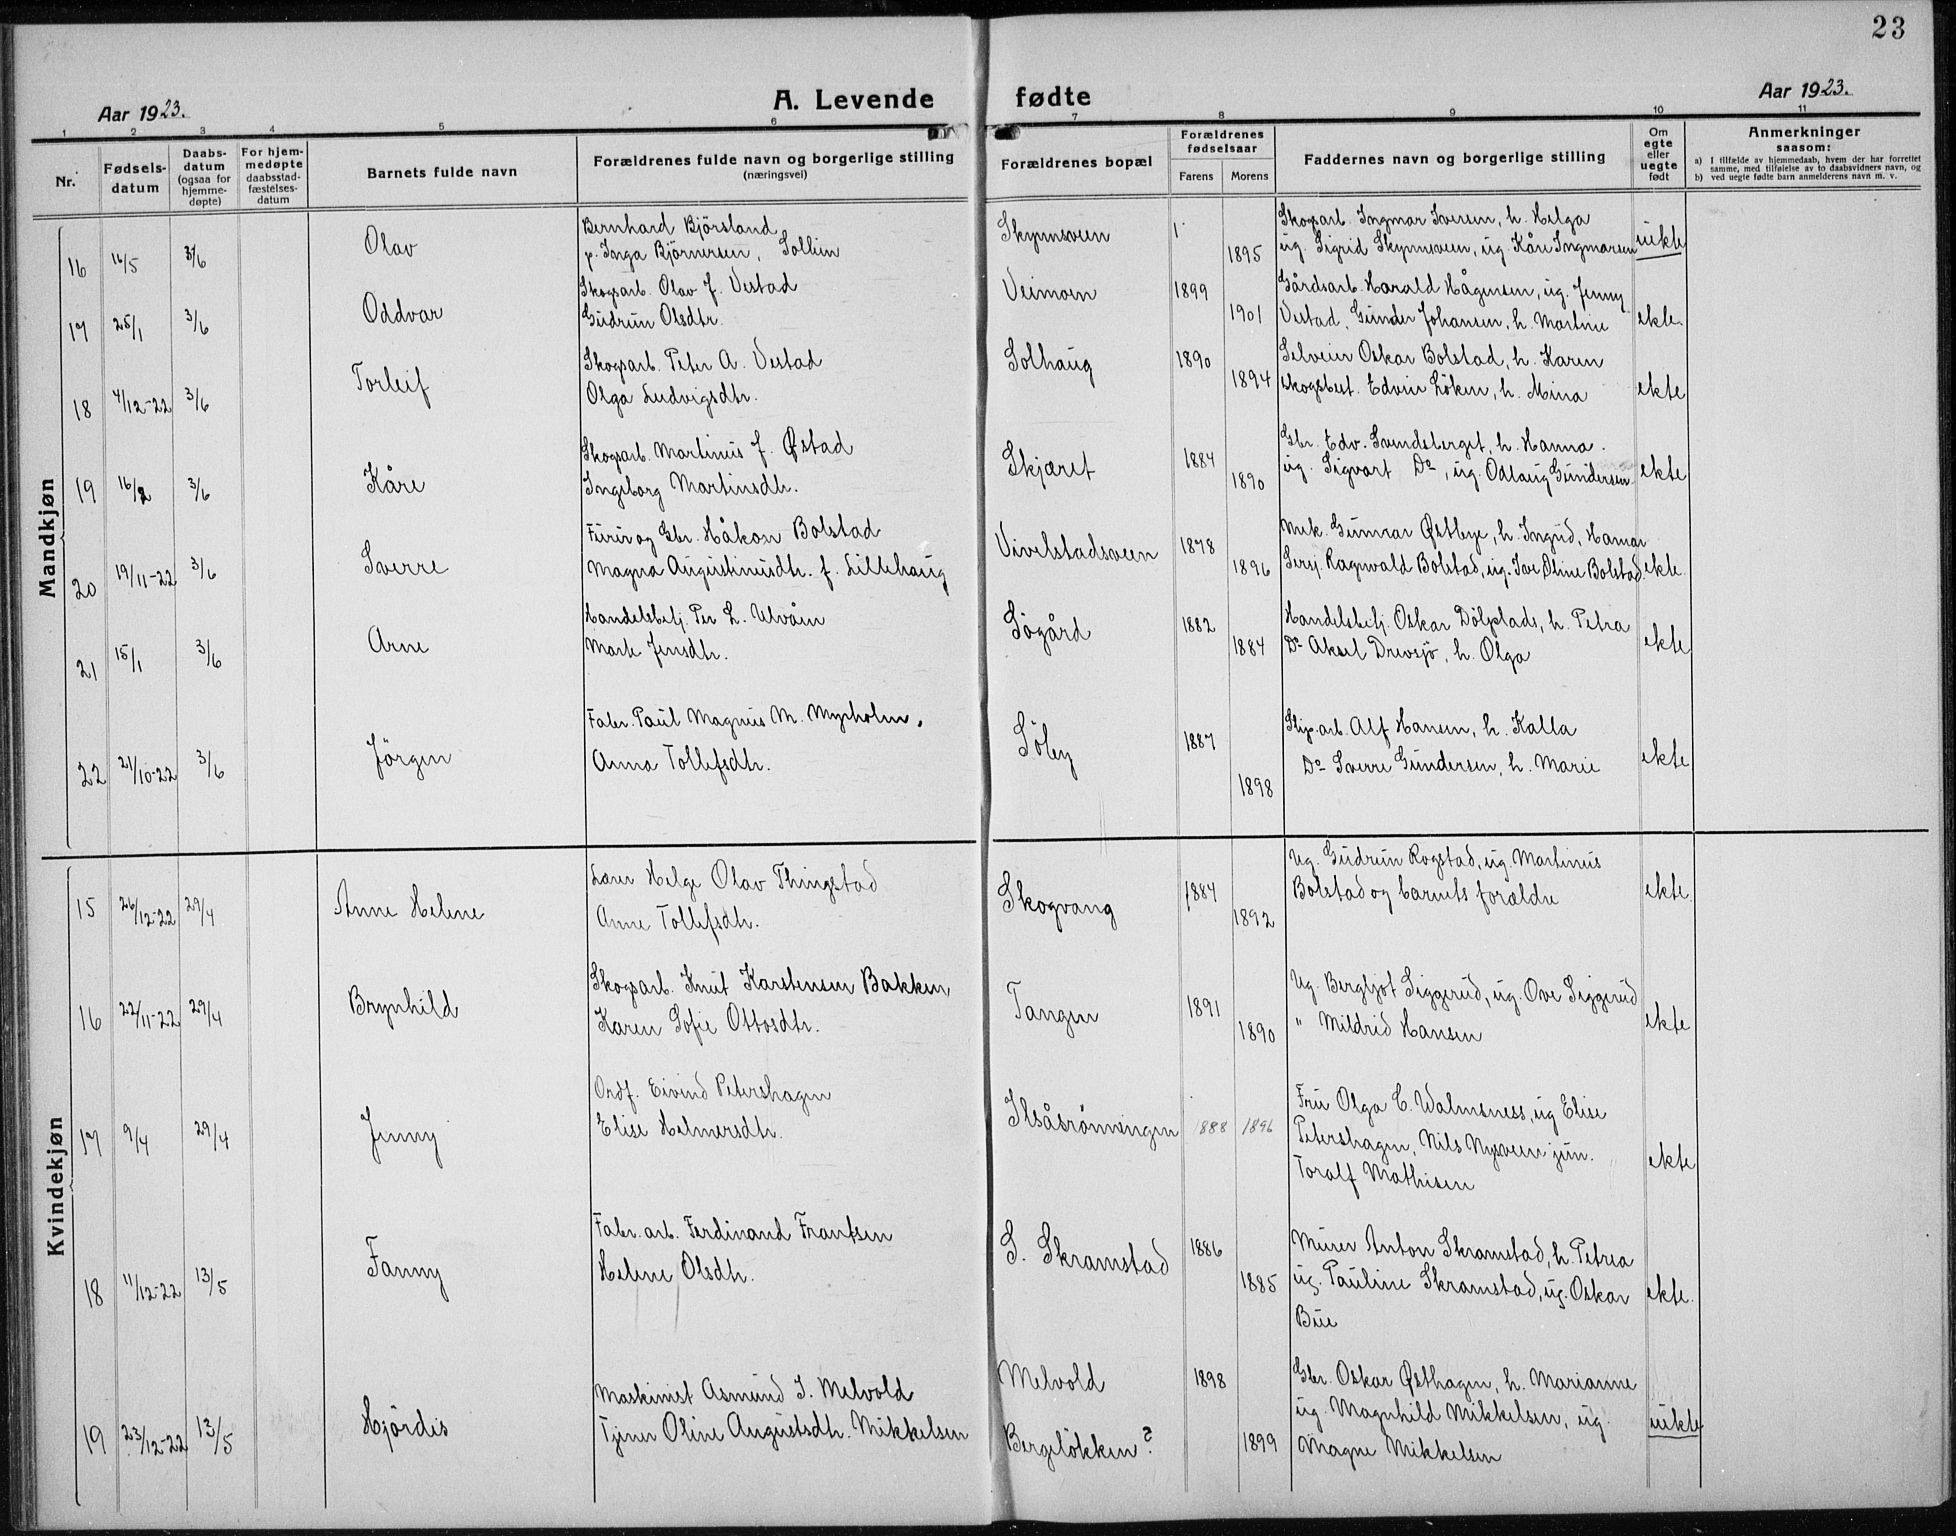 23
Aar 1923.
A. Levende fødte
Aar 1923.
1 2 3 4 5 6 7 8 9 10 11
Nr.
Fødsels-
datum
Daabs-
datum
(ogsaa for
hjemme-
døpte)
For hjem-
medøpte
daabsstad-
fæstelses-
datum
Barnets fulde navn
Forældrenes fulde navn og borgerlige stilling
(næringsvei)
Forældrenes bopæl
Forældrenes
fødselsaar
Farens Morens
Faddernes navn og borgerlige stilling
Om
egte
eller
uegte
født
Anmerkninger
saasom:
a) I tilfælde av hjemmedaab, hvem der har forrettet
samme, med tilføielse av to daabsvidners navn, og
b) ved uegte fødte barn anmelderens navn m. v.
Mandkjøn
16 16/5 3/6 Olav
Bernhard Bjørsland
p. Inga Bjørnersen, Sollien
Skynnsveen
1895
Skogsarb. Ingmar Iversen, h. Helga
ug. Sigrid Skynnsveen, ug. Kåre Ingmarsen
uekte
17 25/1 3/6 Oddvar
Skogsarb. Olav J. Vestad
Gudrun Olsdtr.
Veimoen
1899 1901
Gårdsarb. Harald Hågensen, ug. Jenny
Vestad, Gunder Johansen, h. Martine
ekte.
18 4/12-22 3/6 Torleif
Skogsarb. Peter A. Vestad
Olga Ludvigsdtr.
Solhaug
1890 1894
Selveier Oskar Bolstad, h. Karen
skogsbest. Edvin Løken, h. Mina
ekte
19 16/2 3/6 Kåre
Skogsarb. Martinus J. Østad
Ingeborg Martinsdtr.
Skjæret
1884 1890
Gbr. Edv. Svendsberget, h. Hanna.
ug. Sigvart Do, ug. Odlaug Gundersen.
ekte
20 19/11-22 3/6 Sverre
Furér og Gbr. Håkon Bolstad
Magna Augustinusdtr. f. Lillehaug
Vivelstadsveen
1878 1896
Mek. Gunnar Østbye, h. Ingrid, Hamar
Sersj. Ragnvald Bolstad, ug. Oline Bolstad
ekte.
21 15/1 3/6 Arne
Handelsbetj. Per L. Ulvåen
Marte Jensdtr.
Søgård
1882 1884
Handelsbetj. Oskar Dølplads, h. Petra
Do Aksel Drevsjø, h. Olga
ekte
22 21/10-22 3/6 Jørgen
Fabr. Paul Magnus M. Myrholm,
Anna Tollefsdtr.
Søby
1887 1898
Slip.arb. Alf Hansen, h. Kalla
Do Sverre Gundersen, h. Marie
ekte
Kvindekjøn
15 26/12-22 29/4 Anne Helene
Lærer Helge Olav Thingstad
Anne Tollefsdtr.
Skogvang
1884 1892
Ug. Gudrun Rogstad, ug. Martinus
Bolstad og barnets forældre
ekte
16 22/11-22 29/4 Brynhild
Skogsarb. Knut Karstensen Bakken
Karen Sofie Ottosdtr.
Tangen
1891 1890
Ug. Bergljot Siggerud, ug. Ove Siggerud
" Mildrid Hansen
ekte
17 9/4 29/4 Jenny
Ordf. Eivind Petershagen
Elise Helmersdtr.
Ilsåsrønningen
1888 1896
Fru Olga C. Walmsness, ug Elise
Petershagen, Nils Nysveen jun.
Toralf Mathisen
ekte
18 11/12-22 13/5 Fanny
Fabr. arb. Ferdinand Frantsen
Helene Olsdtr.
S. Skramstad
1886 1885
Murer Anton Skramstad, h. Petrea
ug. Pauline Skramstad, ug. Oskar
Bue
ekte.
19 23/12-22 13/5 Hjørdis
Maskinist Asmund I. Melvold
Tjener Oline Augustsdtr. Mikkelsen
Melvold
Bergeløkken?
1898 1899
Gbr. Oskar Østhagen, h. Marianne
ug. Magnhild Mikkelsen, ug.
Magne Mikkelsen
uekte